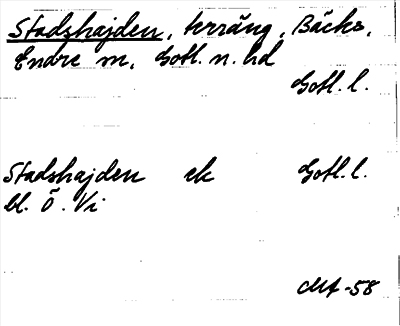 Stadshajden, terräng, Bäcks,
Endre m, Gotl. n. hd
Gotl. l.
Stadshajden ek Gotl. l.
bl. ö. Vi
-58